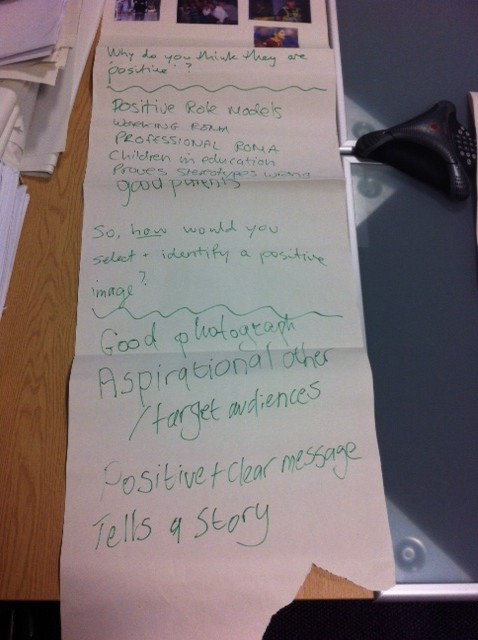 Why do you think they are
'positive'?
Positive Role Models
WORKING ROMA
PROFESSIONAL ROMA
Children in education
Proves stereotypes wrong
good parents
So, how would you
select + identify a positive
image?
Good photograph
Aspirational other
/target audiences
Positive + clear message
Tells a Story